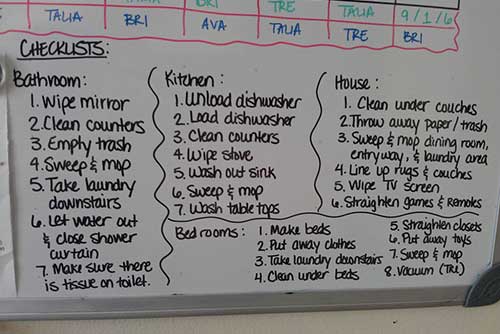 BRI TRE TALIA 9/1/6
TALIA BRI AVA TALIA TRE BRI
CHECKLISTS:
Bathroom:
1. Wipe mirror
2. Clean counters
3. Empty trash
4. Sweep & mop
5. Take laundry
downstairs
6. Let water out
& close shower
curtain
7. Make sure there
is tissue on toilet.
Kitchen:
1. Unload dishwasher
2. Load dishwasher
3. Clean counters
4. Wipe stove
5. Wash out sink
6. Sweep & mop
7. Wash table tops
House:
1. Clean under couches
2. Throw away paper/trash
3. Sweep & mop dining room,
entryway, & laundry area
4. Line up rugs & couches
5. Wipe TV screen
6. Straighten games & remotes
Bedrooms:
1. Make beds
2. Put away clothes
3. Take laundry downstairs
4. Clean under beds
5. Straighten closets
6. Put away toys
7. Sweep & mop
8. Vacuum (Tre)